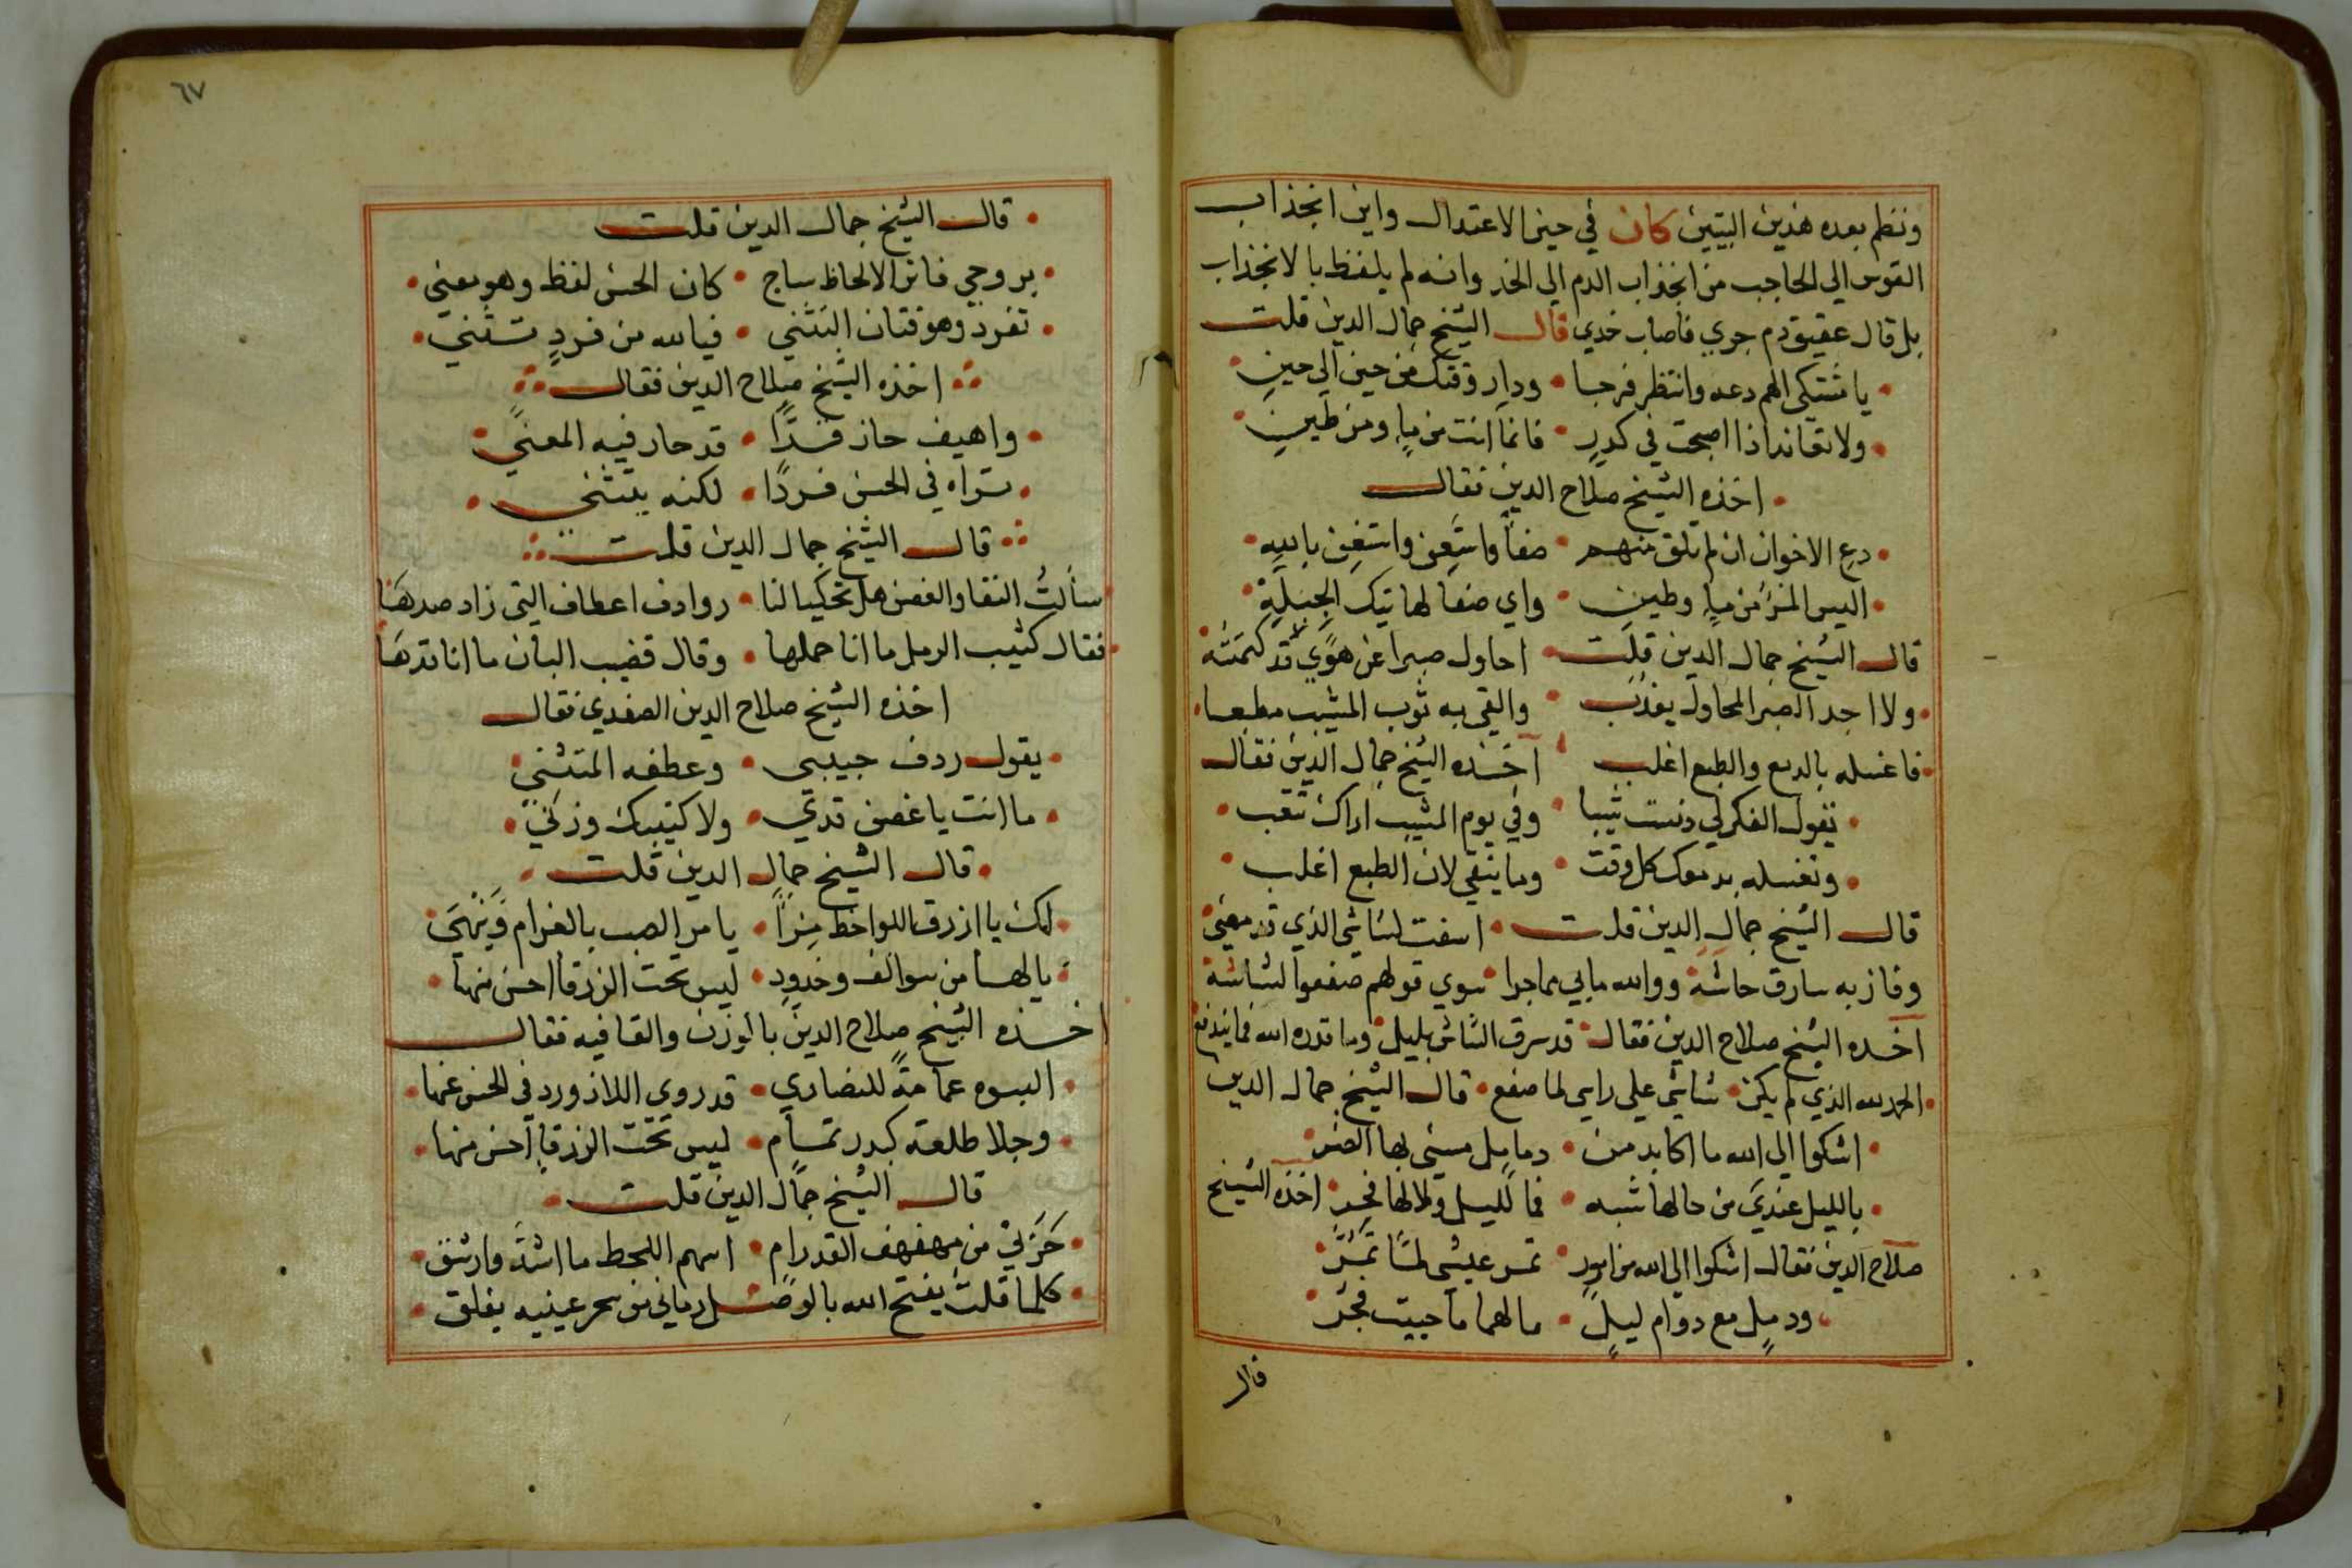 ونظم بعده هذين البيتين كان في حيز الاعتدال واين انجذاب
القوس الي الحاجب من انجذاب الدم الي الخد وانه لم يلفظ بالانجذاب
بل قال عقيق دم جري فاصاب خدي قال الشيخ جمال الدين قلت
يا مشتكي الهم دعه وانتظر فرجا • ودار وقتك من حين الي حين
ولا تعاند اذا اصبحت في كدر • فانما انت من ماء ومن طين
اخذه الشيخ صلاح الدين فقال
دع الاخوان ان لم تلق منهم • صفاً واستعن واستغن بالله
اليس المرء من ماء وطين • واي صفا لهاتيك الجبله
قال الشيخ جمال الدين قلت • احاول صبرا عن هوي قد كتمته
ولا اجد الصبر المحاول يعذب • والقي به ثوب المشيب مطبعا
فاغسله بالدمع والطبع اغلب • اخذه الشيخ جمال الدين فقال
تقول الفكر لي دنست ثيبا • وفي يوم المشيب اراك تتعب
وتغسله بدمعك كل وقت • وما ينقي لان الطبع اغلب
قال الشيخ جمال الدين قلت • اسفت لشاشي الذي قد مضي
وفاز به سارق حاشه • ووالله مابي مما جرا • سوي قولهم صفعوا لشاشه
اخذه الشيخ صلاح الدين فقال • قد سرق الشاش بليل • وما قدره الله فما يندفع
الحمد لله الذي لم يكن • شاشي علي راسي لما صفع • قال الشيخ جمال الدين
اشكوا الي الله ما اكابد من • دمامل مسني بها الضر
بالليل عندي من حالها شبه • فما لليل ولا لها فجر • اخذه الشيخ
صلاح الدين فقال اشكوا الي الله من امور • تمر عيشي لما تمر
ودمل مع دوام ليل • ما لهما ما حييت فجر
قال
٦٧
قال الشيخ جمال الدين قلت
بروحي فاتر الالحاظ ساج • كان الحسن لفظ وهو معني
تفرد وهو فتان التثني • فيا لله من فرد تثني
اخذه الشيخ صلاح الدين فقال
واهيف حاز قدًّا • قد حار فيه المعني
تراه في الحسن فردًا • لكنه يتثني
قال الشيخ جمال الدين قلت
سألت النقا والغصن هل تحكيا لنا • روادف اعطاف التي زاد صدها
فقال كثيب الرمل ما انا حملها • وقال قضيب البان ما انا قدها
اخذه الشيخ صلاح الدين الصفدي فقال
يقول ردف حبيبي • وعطفه المتثني
ما انت يا غصن قدي • ولا كثيبك وزني
قال الشيخ جمال الدين قلت
لك يا ازرق اللواحظ مرأً • يا مر الصب بالغرام وينهي
يا لها من سوالف وخدود • ليس تحت الزرقا احسن منها
اخذه الشيخ صلاح الدين بالوزن والقافيه فقال
البسوه عمامةً للنصاري • قد روي اللازورد في الحسن عنها
وجلا طلعته كبدر تمام • ليس تحت الزرقا احسن منها
قال الشيخ جمال الدين قلت
حزني من مهفهف القد رام • اسهم اللحظ ما اشد وارشق
كلما قلت يفتح الله بالوصل رماني من سحر عينيه يغلق